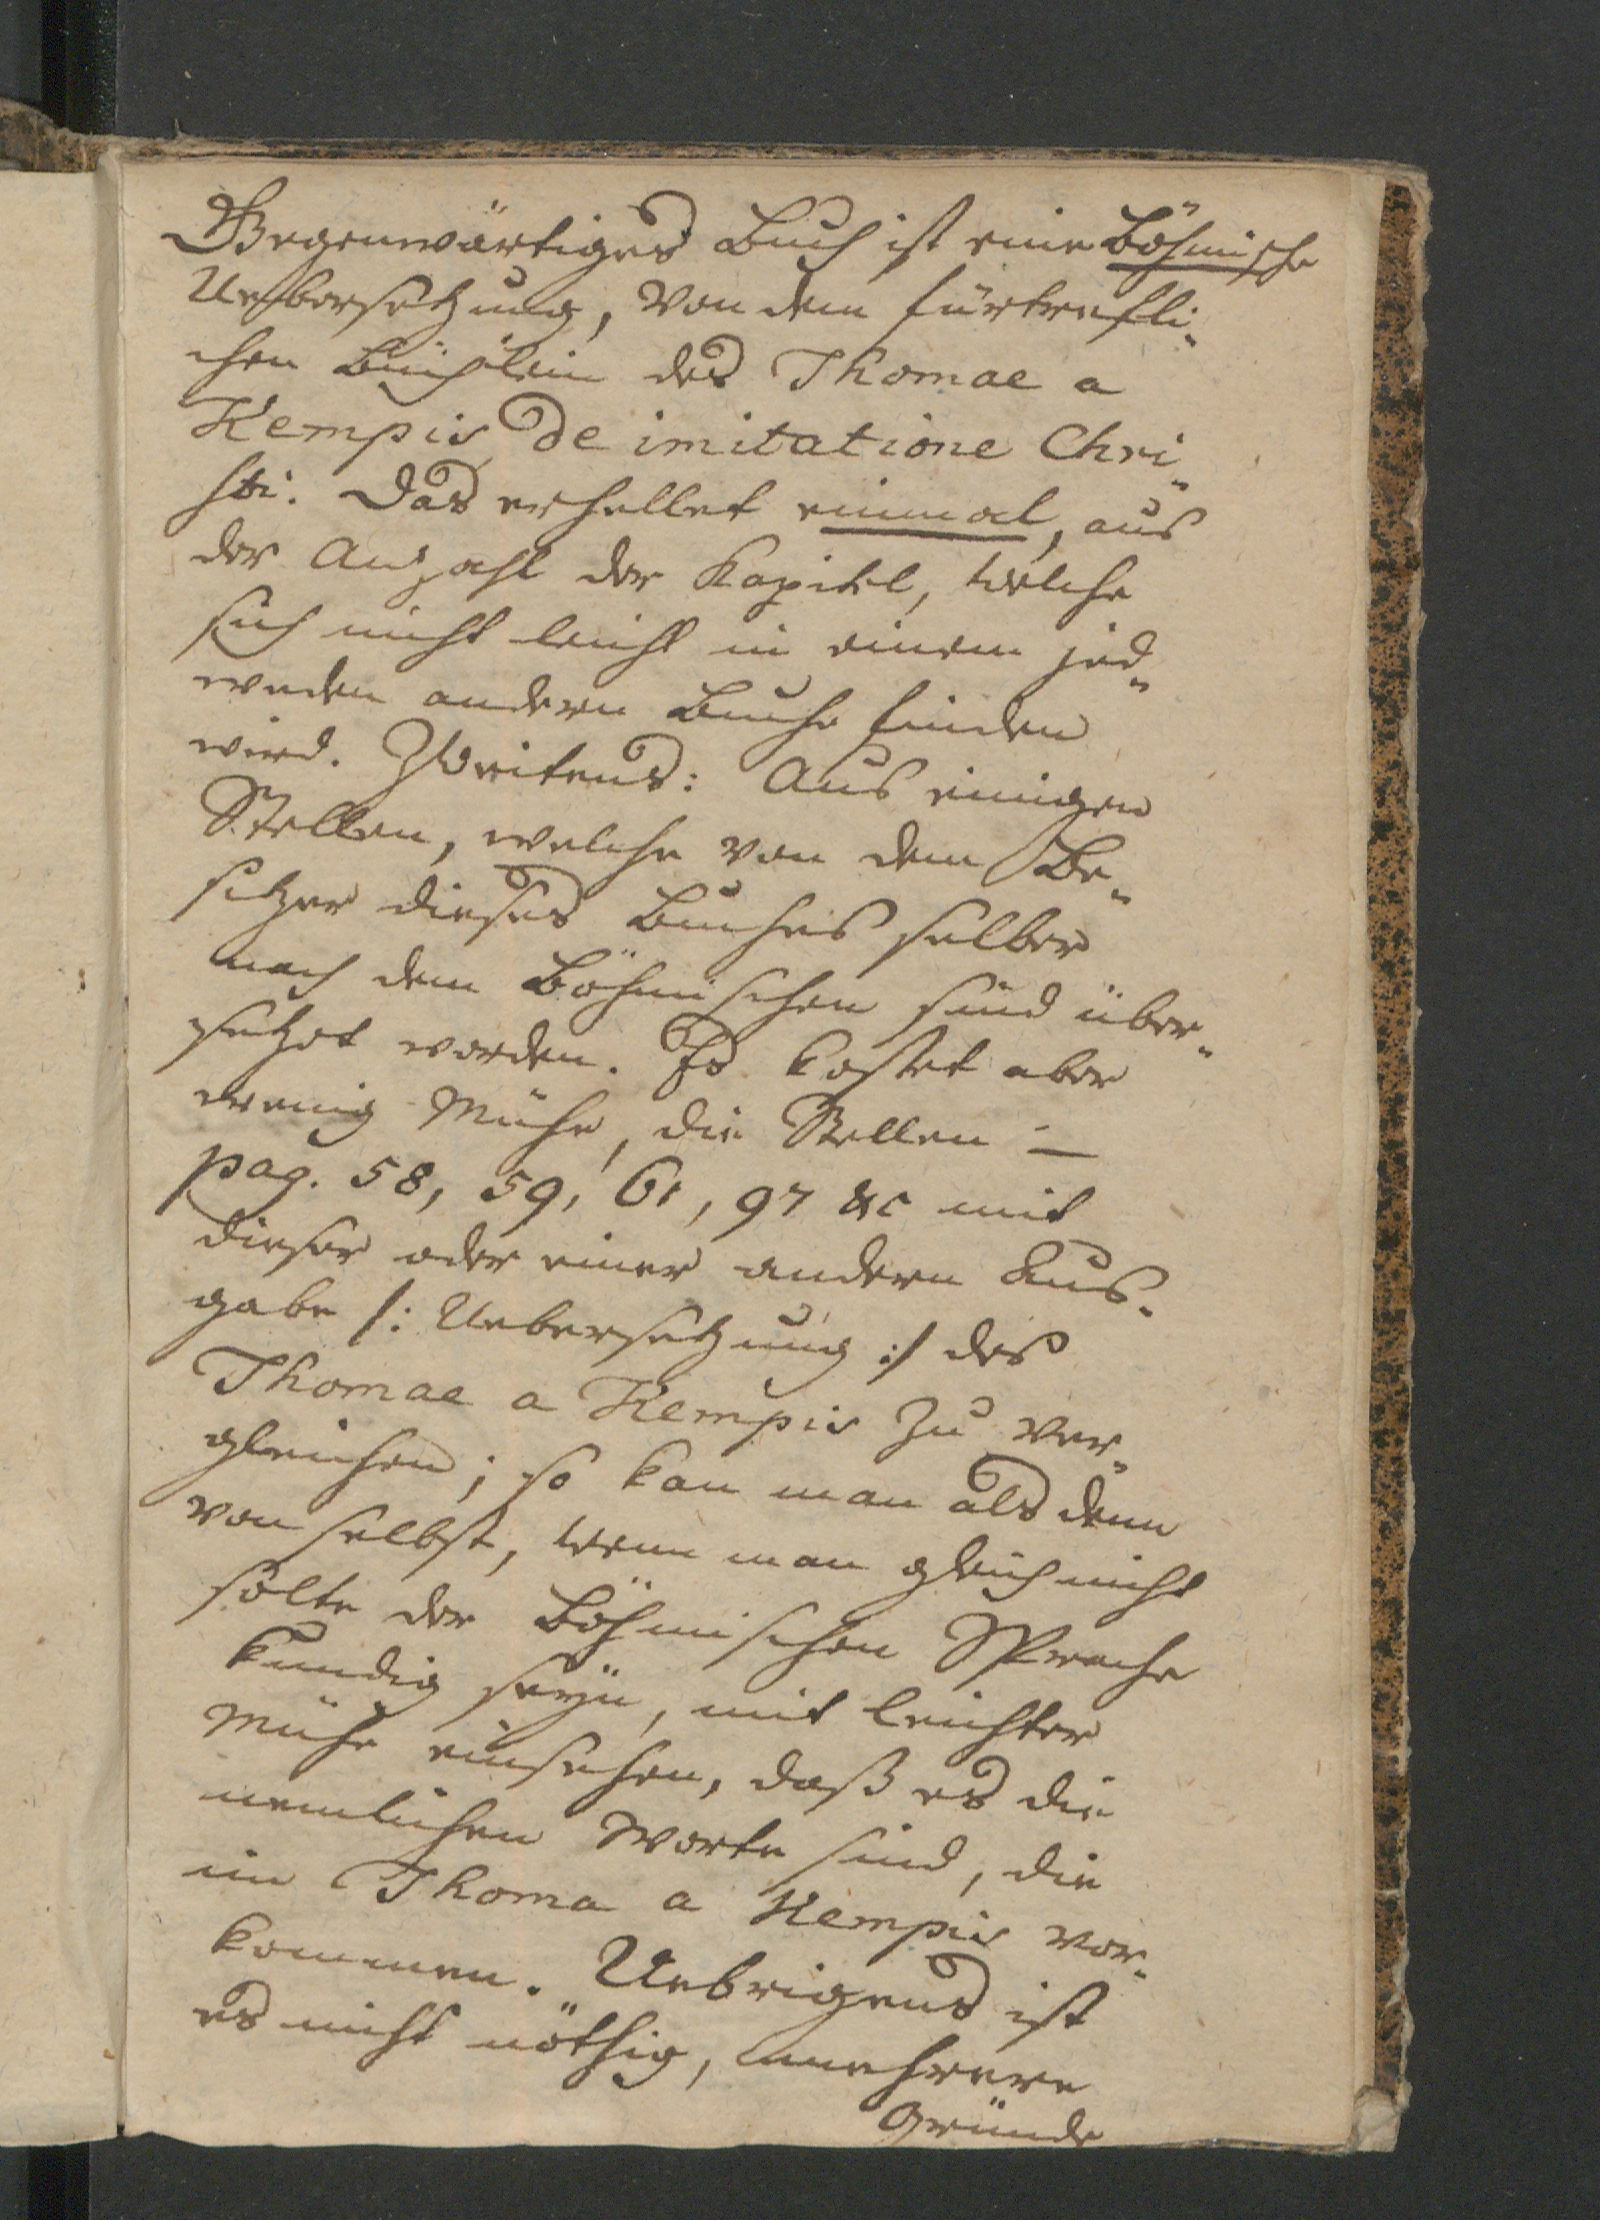 Gegenwärtiges Buch ist eine Böhmische
Uebersetzung, von dem fürtrefli„
chen Büchlein des Thomae a
Kempis de imitatione Chri„
sti. Das erhellet einmal, aus
der Anzahl der Kapitel, welche
sich nicht leicht in einem jed„
weden andern Buche finden
wird. Zweitens: Aus einigen
Stellen, welche von dem Be„
sitzer dieses Buches selber
nach dem Böhmischen sind über„
setzet worden. Es kostet aber
wenig Mühe, die Stellen –
pag. 58, 59, 61, 97 &c mit
dieser oder einer andern Aus„
gabe /: Uebersetzung :/ des
Thomae a Kempis zu ver„
gleichen; so kan man als denn
von selbst, wenn man gleich nicht
solte der Böhmischen Sprache
kundig seyn, mit leichter
Mühe einsehen, daß es die
nemlichen Worte sind, die
im Thoma a Kempis vor„
kommen. Uebrigens ist
es nicht nöthig, mehrere
Gründe